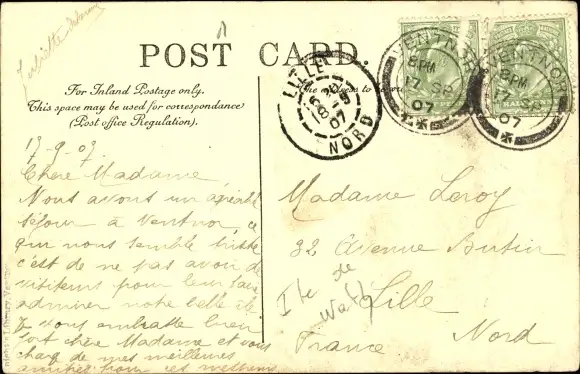 POST CARD.
For Inland Postage only.
This space may be used for correspondence
(Post office Regulation).
The address to be
VENTNOR
8 PM
17 SP
07
VENTNOR
8 PM
17 SP
07
LILLE
NORD
07
17-9-07
Chère Madame,
Nous avons un agréable
séjour à Ventnor, ce
qui nous semble triste
c'est de ne pas avoir de
visiteurs pour leur faire
admirer notre belle île
Je vous embrasse bien
fort chère Madame et vous
charge de mes meilleures
amitiés pour ces messieurs
Madame Leroy
32 Avenue Butin
Lille
Nord
France
Ile de